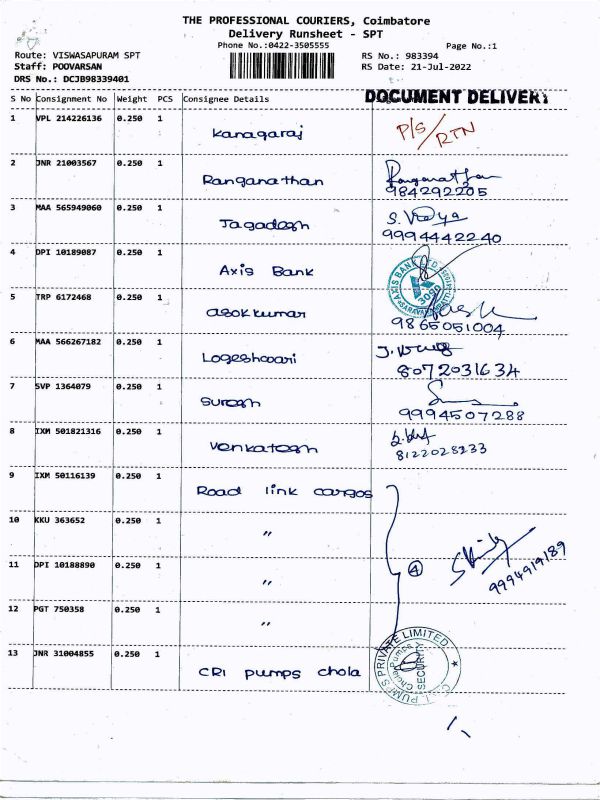 THE PROFESSIONAL COURIERS, Coimbatore
Delivery Runsheet - SPT
Phone No.:0422-3505555
Page No.:1
Route: VISWASAPURAM SPT
RS No.: 983394
Staff: POOVARSAN
RS Date: 21-Jul-2022
DRS No.: DCJB98339401
S No Consignment No Weight PCS Consignee Details DOCUMENT DELIVERY
1 VPL 214226136 0.250 1 Kanagaraj P/S/RTN
2 JNR 21003567 0.250 1 Ranganathan Ranganathan
984292205
3 MAA 565949060 0.250 1 Jagadesh S. Vidya
9994442240
4 DPI 10189087 0.250 1 Axis Bank AXIS BANK LTD. 3090
5 TRP 6172468 0.250 1 asokkumar
9865051004
6 MAA 566267182 0.250 1 Logeshwari
8072031634
7 SVP 1364079 0.250 1 Suresh
9994507288
8 IXM 501821316 0.250 1 Venkatesh
8122028233
9 IXM 50116139 0.250 1 Road link cargos
10 KKU 363652 0.250 1 "
11 DPI 10188890 0.250 1 " 4 9994919189
12 PGT 750358 0.250 1 "
13 JNR 31004855 0.250 1 CRI pumps chola C.R.I. PUMPS PRIVATE LIMITED Chola Pumps SECURITY